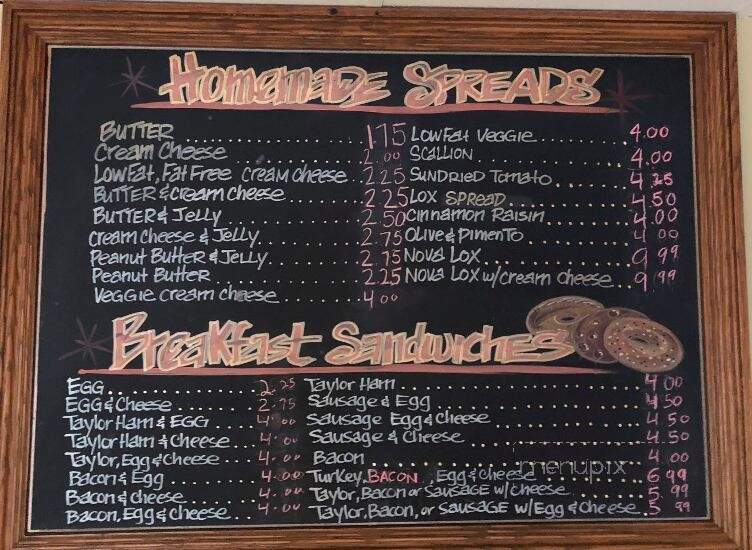 Homemade Spreads
Butter 1.75
Cream Cheese 2.00
Lowfat, Fat Free cream cheese 2.25
Butter & cream cheese 2.25
Butter & Jelly 2.50
cream cheese & Jelly 2.75
Peanut Butter & Jelly 2.75
Peanut Butter 2.25
Veggie cream cheese 4.00
Lowfat Veggie 4.00
Scallion 4.00
Sundried Tomato 4.25
Lox Spread 4.50
Cinnamon Raisin 4.00
Olive & Pimento 4.00
Nova Lox 9.99
Nova Lox w/cream cheese 9.99
Breakfast Sandwiches
Egg 2.25
Egg & Cheese 2.75
Taylor Ham & Egg 4.00
Taylor Ham & Cheese 4.00
Taylor, Egg & Cheese 4.00
Bacon & Egg 4.00
Bacon & cheese 4.00
Bacon, Egg & cheese 4.00
Taylor Ham 4.00
Sausage & Egg 4.50
Sausage Egg & Cheese 4.50
Sausage & Cheese 4.50
Bacon 4.00
Turkey, Bacon, Egg & cheese 6.99
Taylor, Bacon or Sausage w/cheese 5.99
Taylor, Bacon, or Sausage w/Egg & cheese 5.99
menupix